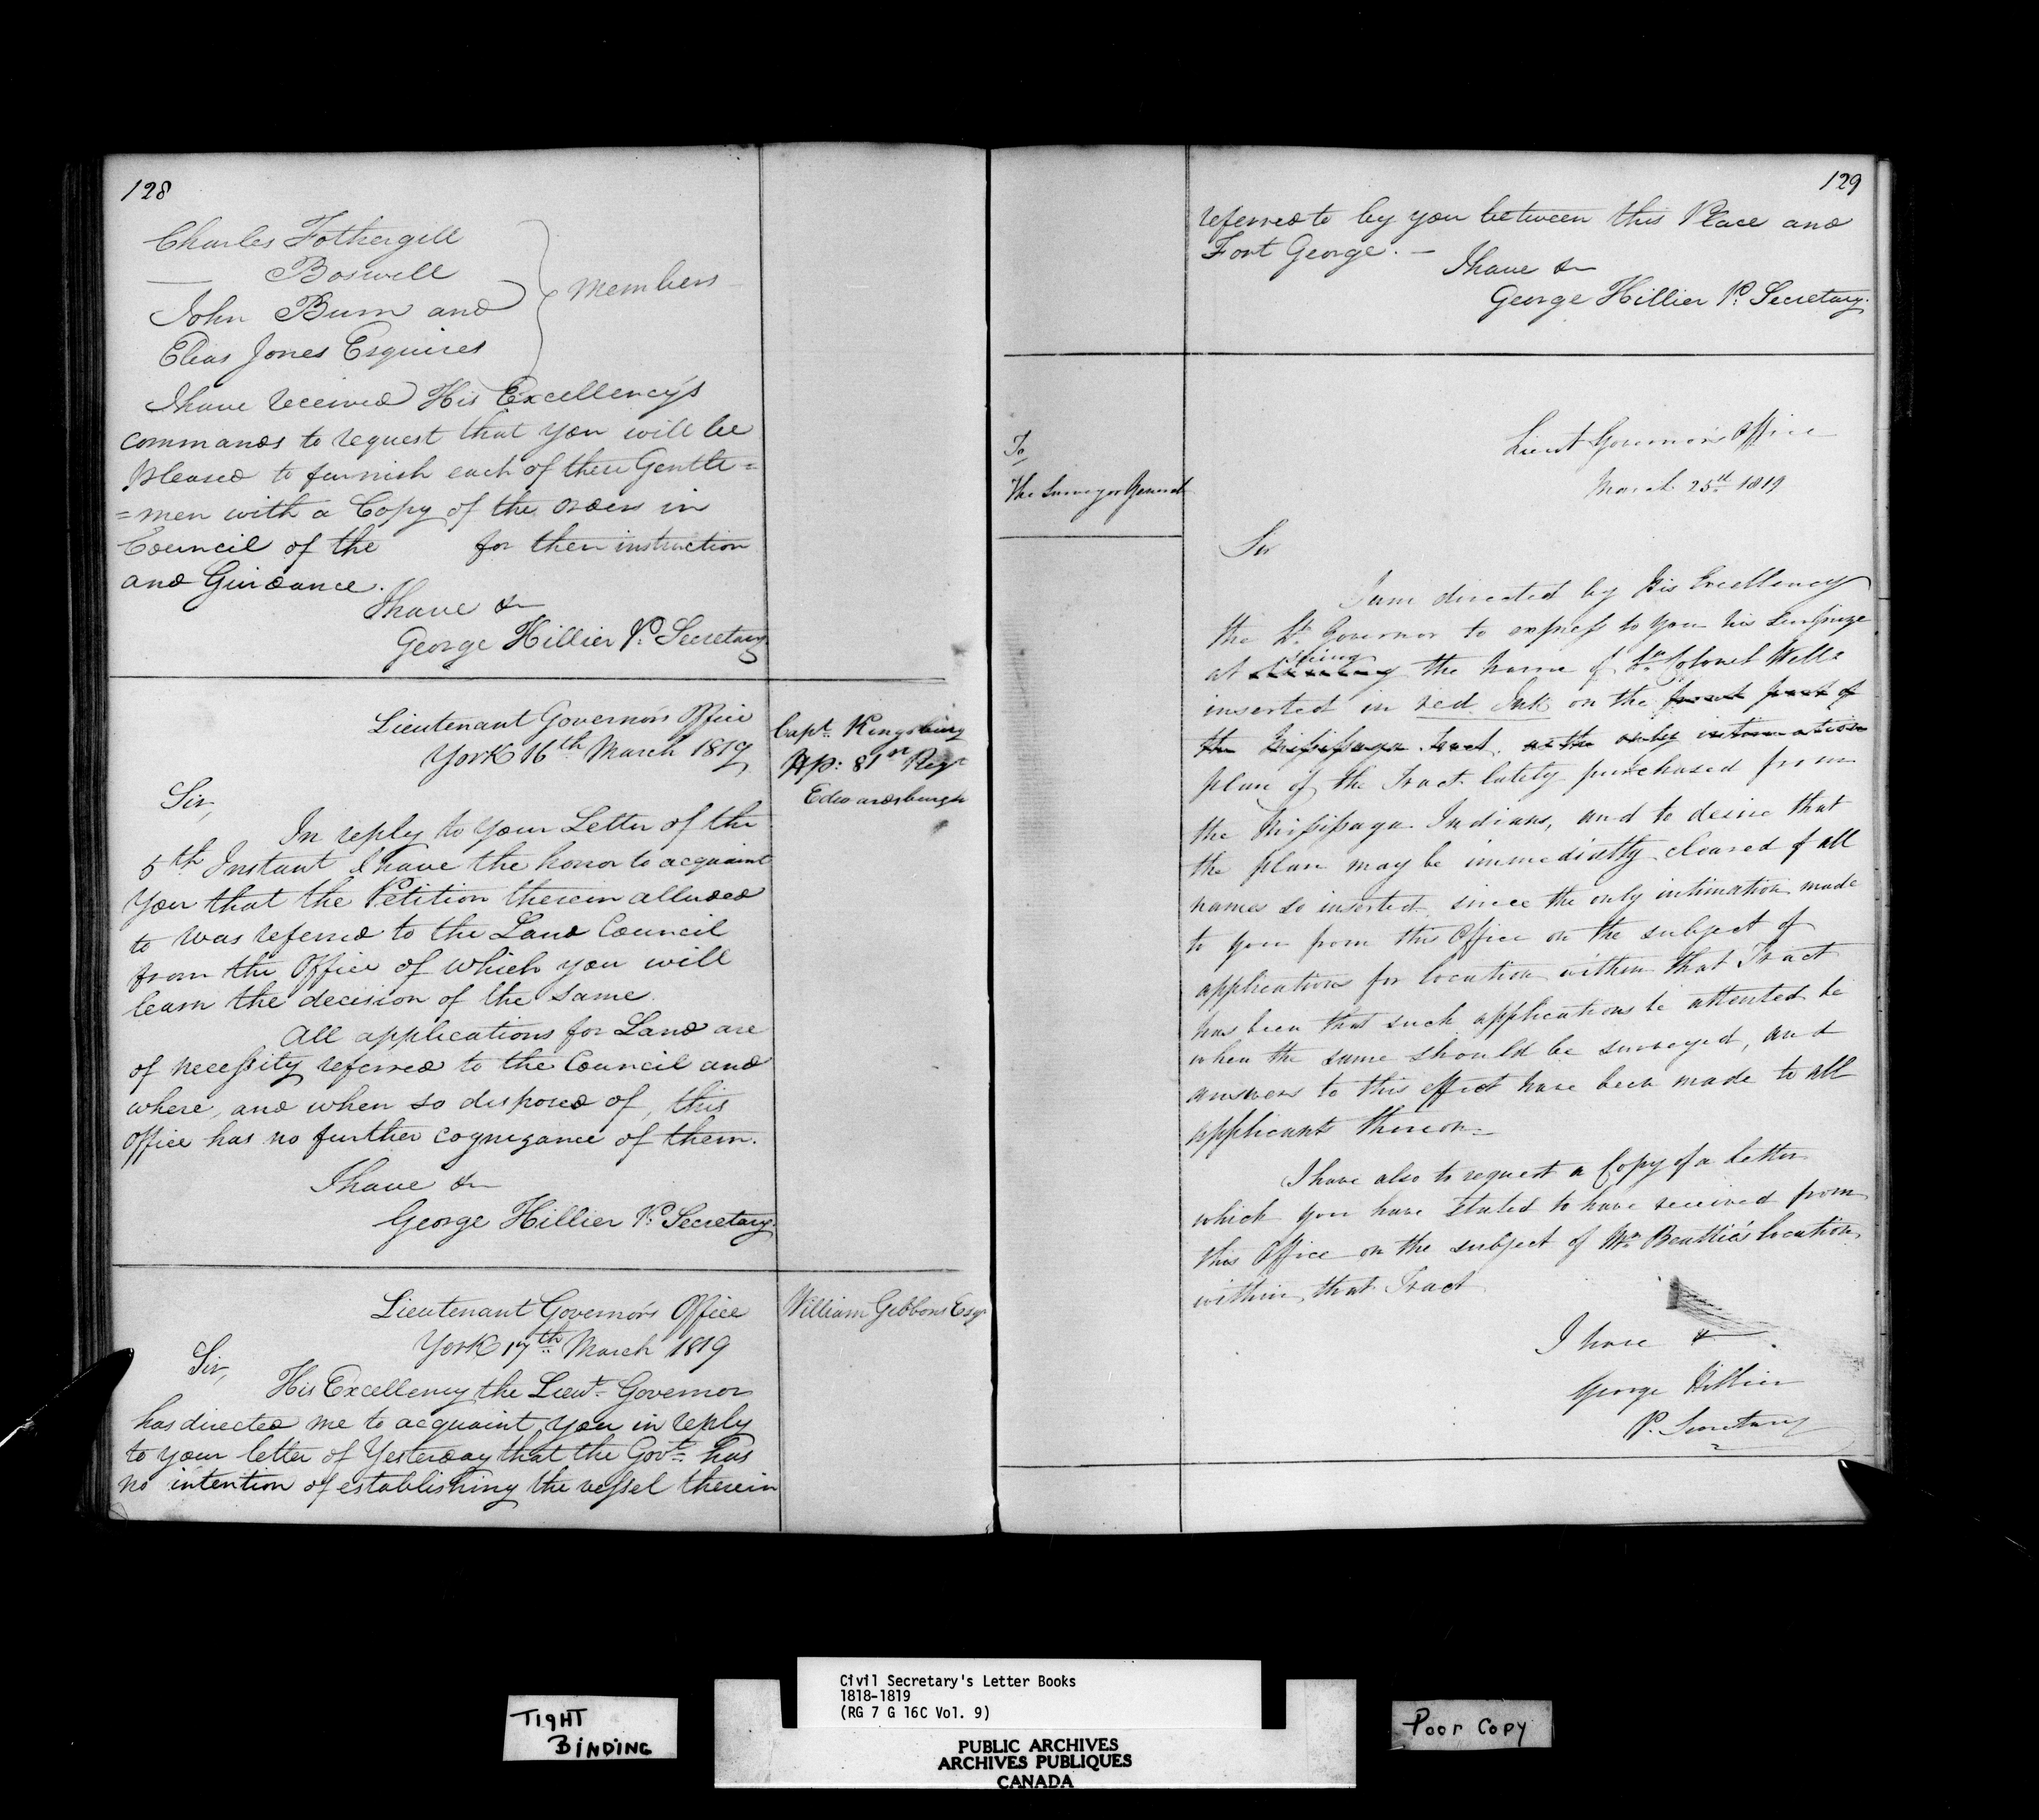 128
Charles Fothergill
— Boswell
John Burn and
Elias Jones Esquires
Members
I have received His Excellency's
commands to request that you will be
pleased to furnish each of these Gentle=
=men with a Copy of the orders in
Council of the for their instruction
and Guidance.
I have &c
George Hillier P. Secretary
Lieutenant Governor's Office
York 16th March 1819
Capt. Kingsbury
Hp: 81st Regt
Edwardsburgh
Sir,
In reply to your Letter of the
5th Instant I have the honor to acquaint
You that the Petition therein alluded
to was referred to the Land Council
from the Office of which you will
learn the decision of the same.
All applications for Land are
of necessity referred to the Council and
where, and when so disposed of, this
Office has no further cognizance of them.
I have &c
George Hillier P. Secretary
Lieutenant Governor's Office
York 17th March 1819
William Gibbons Esqr
Sir,
His Excellency the Lieut. Governor
has directed me to acquaint you in reply
to your letter of Yesterday that the Govt. has
no intention of establishing the vessel therein
129
referred to by you between this Place and
Fort George. —
I have &c
George Hillier P. Secretary
Lieut Governor's Office
March 25th 1819
To
The Surveyor General
Sir
I am directed by His Excellency
the Lt. Governor to express to you his surprize
at seeing the name of Lt. Colonel Wells
inserted in red Ink on the front part of
the Missisaga Tract. as the only intimation
plan of the Tract lately purchased from
the Missisaga Indians, and to desire that
the plan may be immediatly cleared of all
names so inserted, since the only intimation made
to you from this Office on the subject of
applications for location within that Tract
has been that such applications be attested be
when the same should be surveyed, and
answers to this effect have been made to all
applicants thereon.
I have also to request a Copy of a letter
which you have stated to have received from
this Office on the subject of Mr. Beattie's location
within that Tract
I have &
George Hillier
P. Secretary
TIGHT
BINDING
Civil Secretary's Letter Books
1818-1819
(RG 7 G 16C Vol. 9)
PUBLIC ARCHIVES
ARCHIVES PUBLIQUES
CANADA
Poor Copy